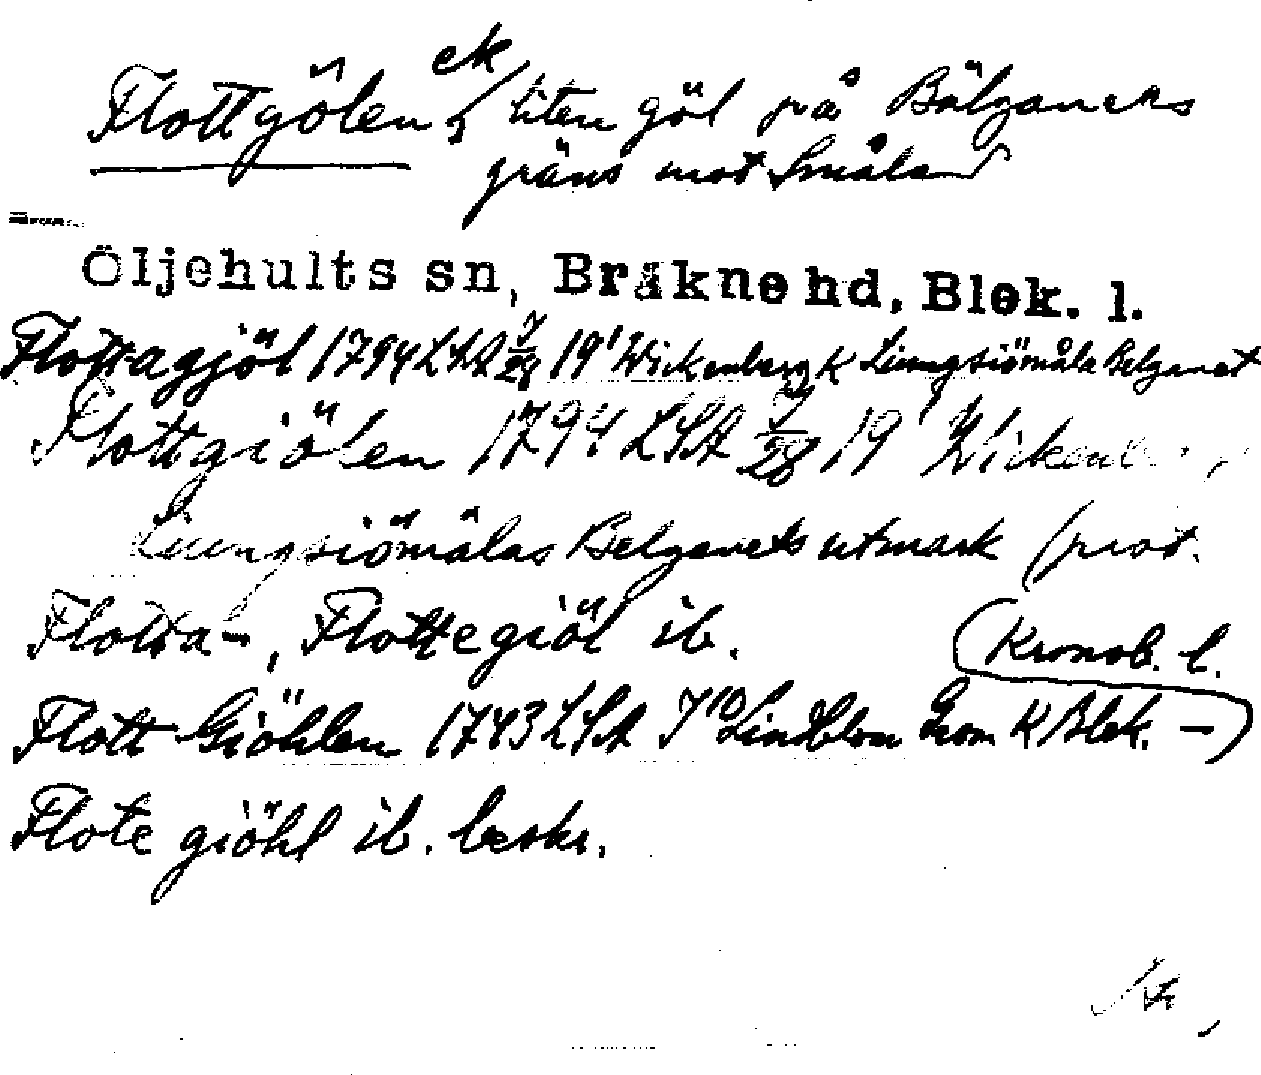 Flottgölen ek liten göl på Bälganets
gräns mot Småland
Öljehults sn, Bräkne hd, Blek. l.
Flottagjöl 1794 LSA 7/28 19' Wickenberg K Liungsiömåla Belganet
Flottgiölen 1794 LSA 7/28 19' Wickenberg
Liungsiömålas Belganets utmark (prot.
Flotta-, Flottegiöl ib. (Kronob. l.
Flott Giöhlen 1743 LSA 7 10 Lindblom Grom K Blek. -)
Flote giöhl ib. beskr.